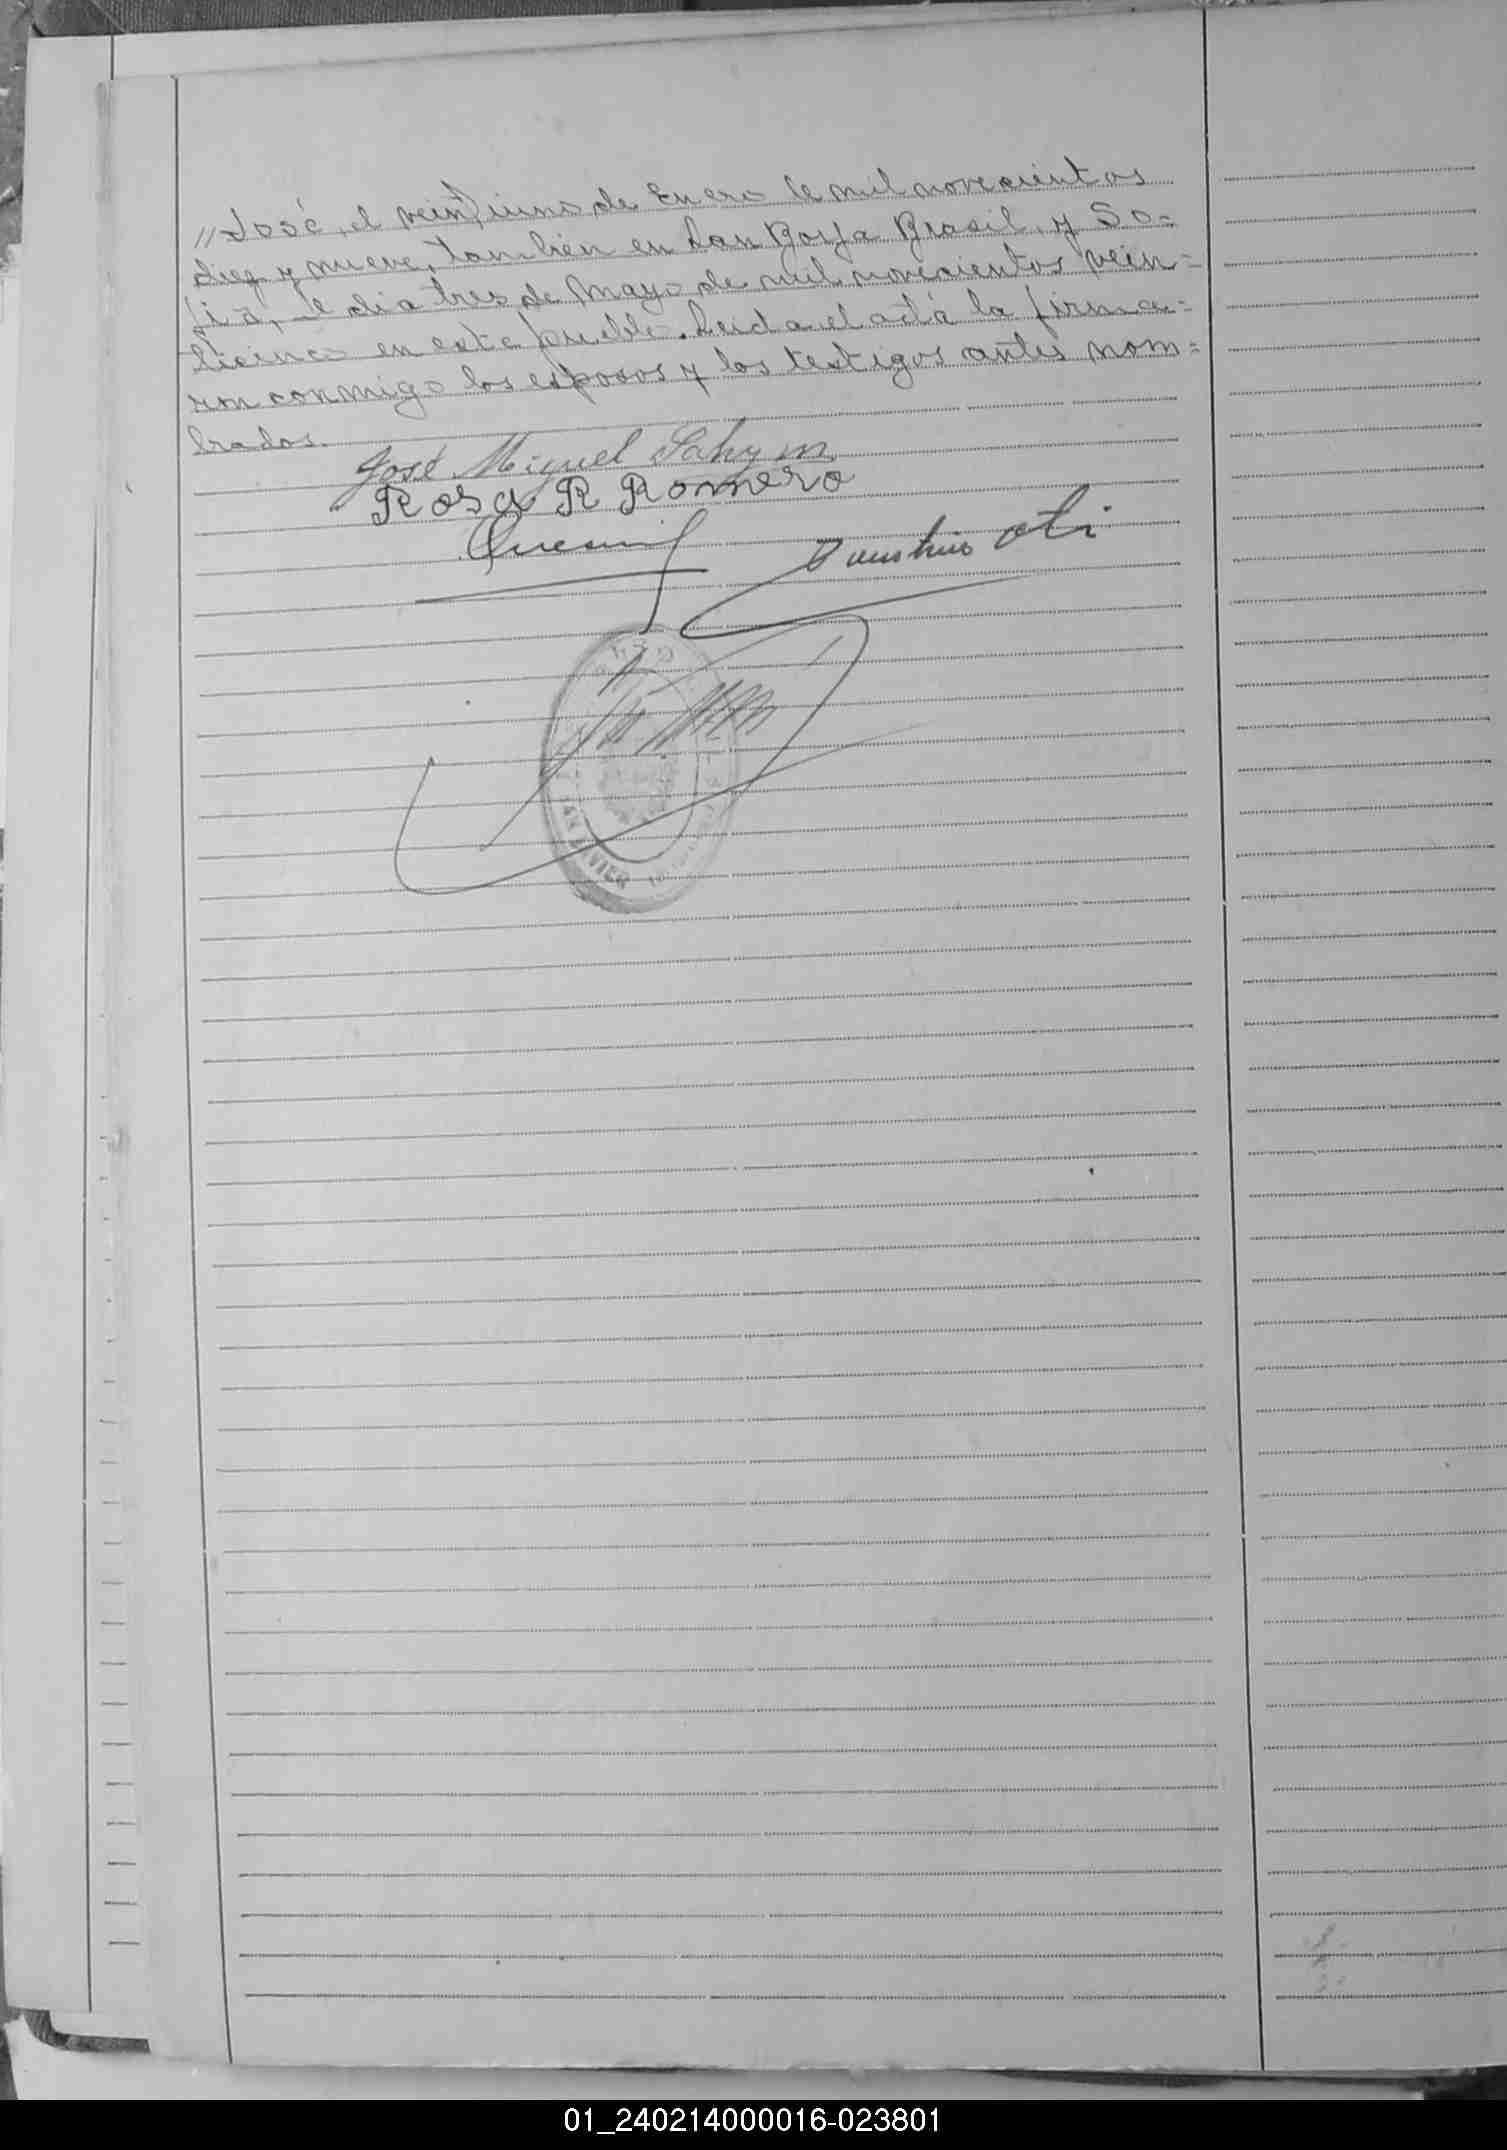 "José, el veintiuno de Enero de mil novecientos
diez y nueve, tambien en San Borja Brasil, y So=
fia, el dia tres de Mayo de mil novecientos vein=
ticinco en este pueblo. Leida el acta la firma=
ron conmigo los esposos y los testigos antes nom=
brados.
José Miguel Sahym
Rosa R Romero
AN JAVIER
01_240214000016-023801